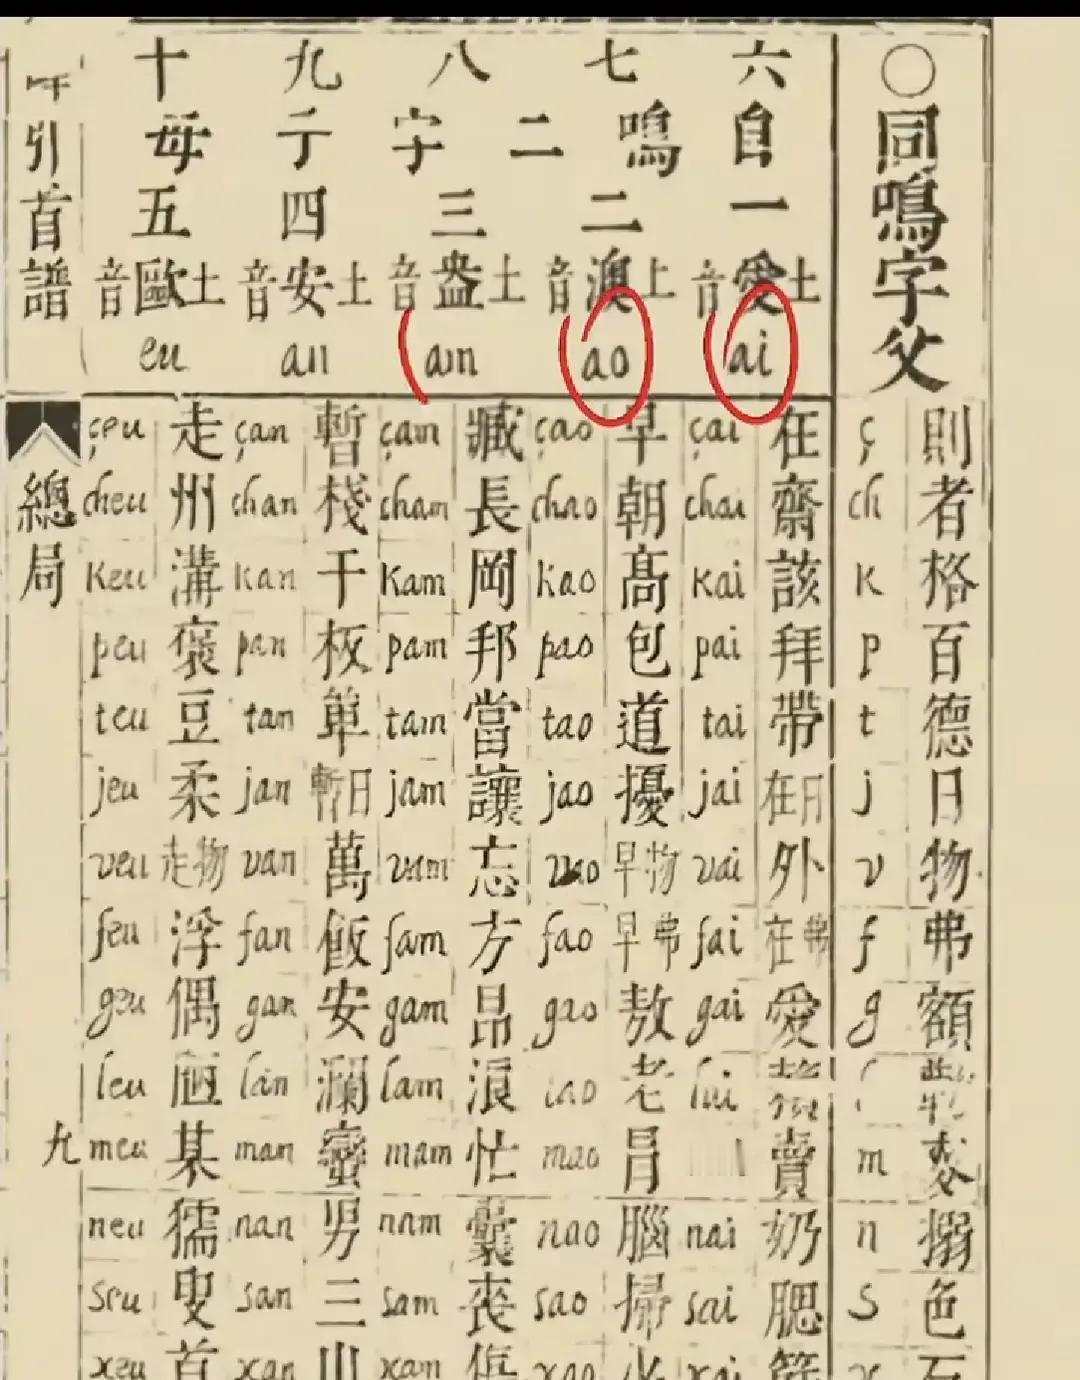 ○同鳴字父
則者格百德日物弗額麥搦色石
ç ch K p t j v f g m n s x
六 七 八 九 十
自鳴二字子母
一 二 三 四 五
土愛音 上澳音 土盎音 土安音 土歐音
ai ao am an eu
在齋該拜帶在日外在弗愛賣奶腮篩
çai chai Kai pai tai jai vai fai gai lai nai sai xai
早朝高包道擾早物早弗敖老冃腦掃少
çao chao Kao pao tao jao vao fao gao lao mao nao sao xao
臟長岡邦當讓忘方昂浪忙囊喪
çam cham Kam pam tam jam vam fam gam lam mam nam sam xam
暫棧干板單暫日萬飯安瀾蠻男三山
çan chan Kan pan tan jan van fan gan lan man nan san xan
走州溝褒豆柔走物浮偶某獳叟首
çeu cheu Keu peu teu jeu veu feu geu leu meu neu seu xeu
引首譜
總局
九